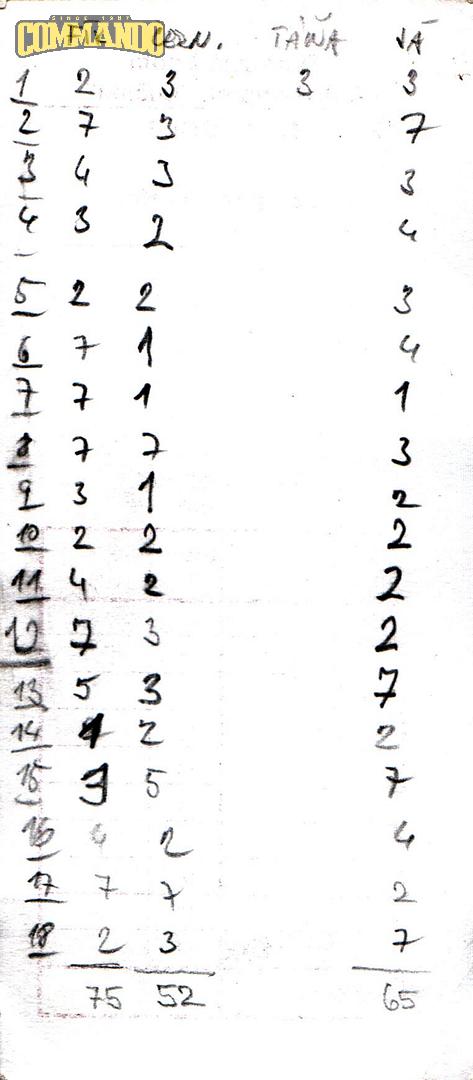 SINCE 1987
COMMANDO
TÁŇA JÁ
1 2 3 3 3
2 7 3 7
3 4 3 3
4 3 2 4
5 2 2 3
6 7 1 4
7 7 1 1
8 7 7 3
9 3 1 2
10 2 2 2
11 4 2 2
12 7 3 2
13 5 3 7
14 1 2 2
15 1 5 7
16 4 2 4
17 7 7 2
18 2 3 7
75 52 65